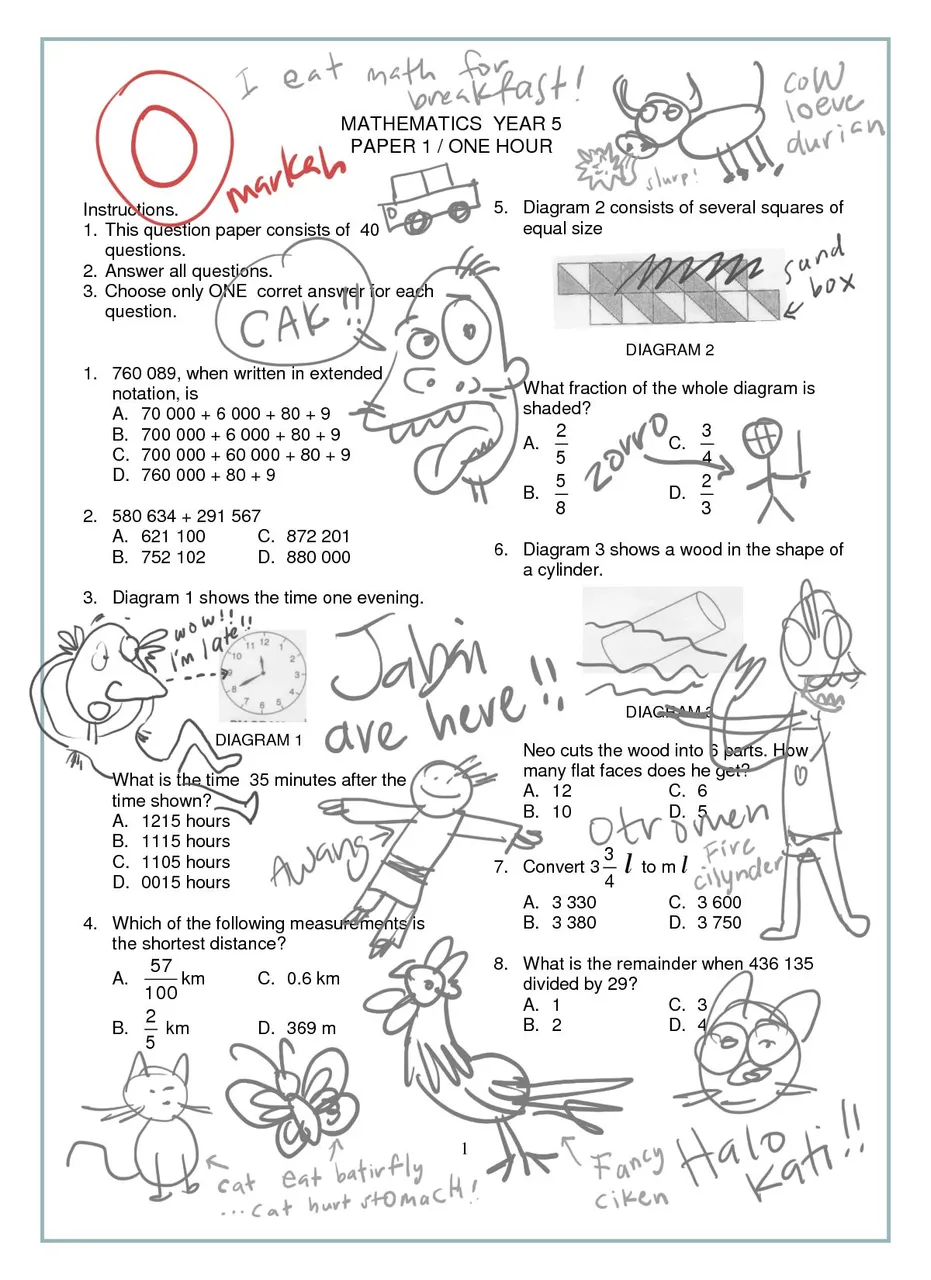 I eat math for
breakfast!
MATHEMATICS YEAR 5
PAPER 1 / ONE HOUR
0
markah
cow
loeve
durian
slurp!
Instructions.
1. This question paper consists of 40
questions.
2. Answer all questions.
3. Choose only ONE corret answer for each
question.
CAK!!
1. 760 089, when written in extended
notation, is
A. 70 000 + 6 000 + 80 + 9
B. 700 000 + 6 000 + 80 + 9
C. 700 000 + 60 000 + 80 + 9
D. 760 000 + 80 + 9
2. 580 634 + 291 567
A. 621 100 C. 872 201
B. 752 102 D. 880 000
3. Diagram 1 shows the time one evening.
wow!!
I'm late!!
12
11 1
10 2
9 3
8 4
7 5
6
DIAGRAM 1
Jabin
are here!!
What is the time 35 minutes after the
time shown?
A. 1215 hours
B. 1115 hours
C. 1105 hours
D. 0015 hours
Awang
4. Which of the following measurements is
the shortest distance?
A. 57/100 km C. 0.6 km
B. 2/5 km D. 369 m
cat eat batirfly
...cat hurt stomach!
5. Diagram 2 consists of several squares of
equal size
sand
box
DIAGRAM 2
What fraction of the whole diagram is
shaded?
A. 2/5 C. 3/4
B. 5/8 D. 2/3
zorro
6. Diagram 3 shows a wood in the shape of
a cylinder.
DIAGRAM 3
Neo cuts the wood into 6 parts. How
many flat faces does he get?
A. 12 C. 6
B. 10 D. 5
Otromen
Fire
cilynder
7. Convert 3 3/4 l to m l
A. 3 330 C. 3 600
B. 3 380 D. 3 750
8. What is the remainder when 436 135
divided by 29?
A. 1 C. 3
B. 2 D. 4
Fancy
ciken
Halo
Kati!!
1